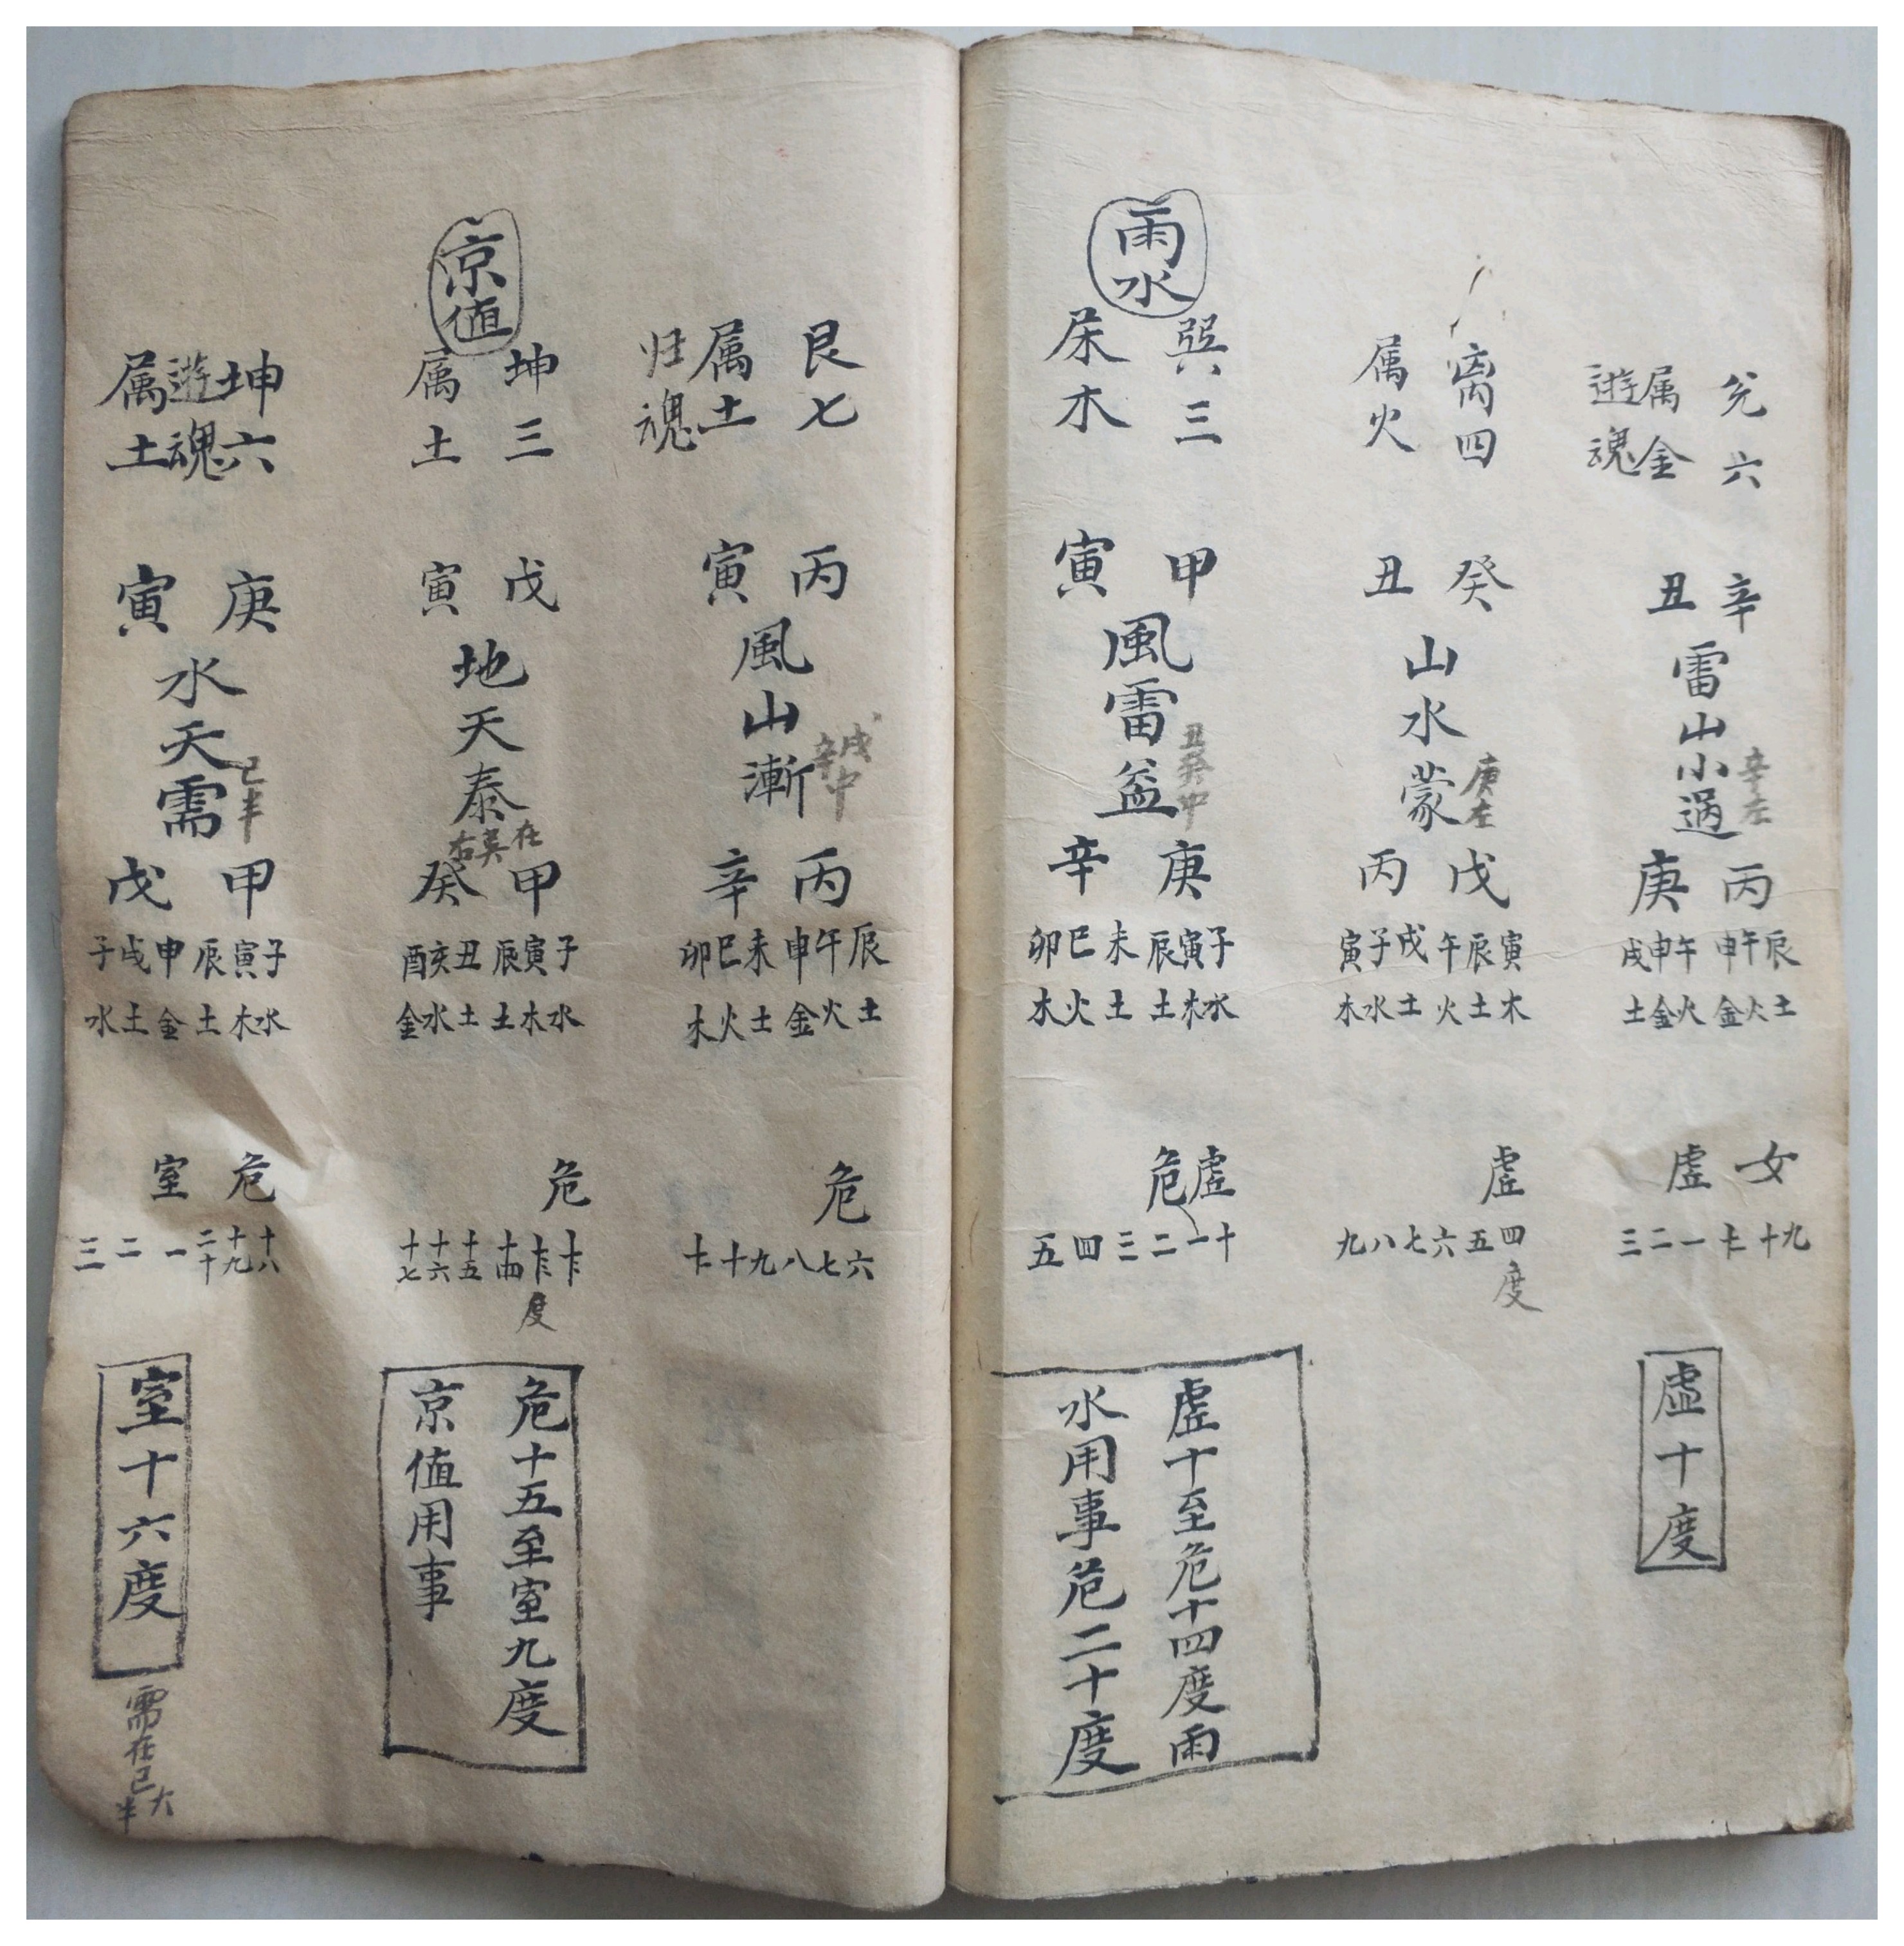 兌六
属金
遊魂
辛丑
雷山小過
辛左
丙庚
辰午申午申戌
土火金火金土
女虛
九十十一一二三
虛十度
离四
属火
癸丑
山水蒙
庚左
戊丙
寅辰午戌子寅
木土火土水木
虛
四五六七八九
度
雨水
巽三
属木
甲寅
風雷益
丑癸中
庚辛
子寅辰未巳卯
水木土土火木
虛危
十一二三四五
虛十至危十四度雨
水用事危二十度
艮七
属土
归魂
丙寅
風山漸
辛戌中
丙辛
辰午申未巳卯
土火金土火木
危
六七八九十十一
京值
坤三
属土
戊寅
地天泰
在英右
甲癸
子寅辰丑亥酉
水木土土水金
危
十二十三十四十五十六十七
度
危十五至室九度
京值用事
坤六
遊魂
属土
庚寅
水天需
已半
甲戊
子寅辰申戌子
水木土金土水
危室
十八十九二十一二三
室十六度
需在已大半